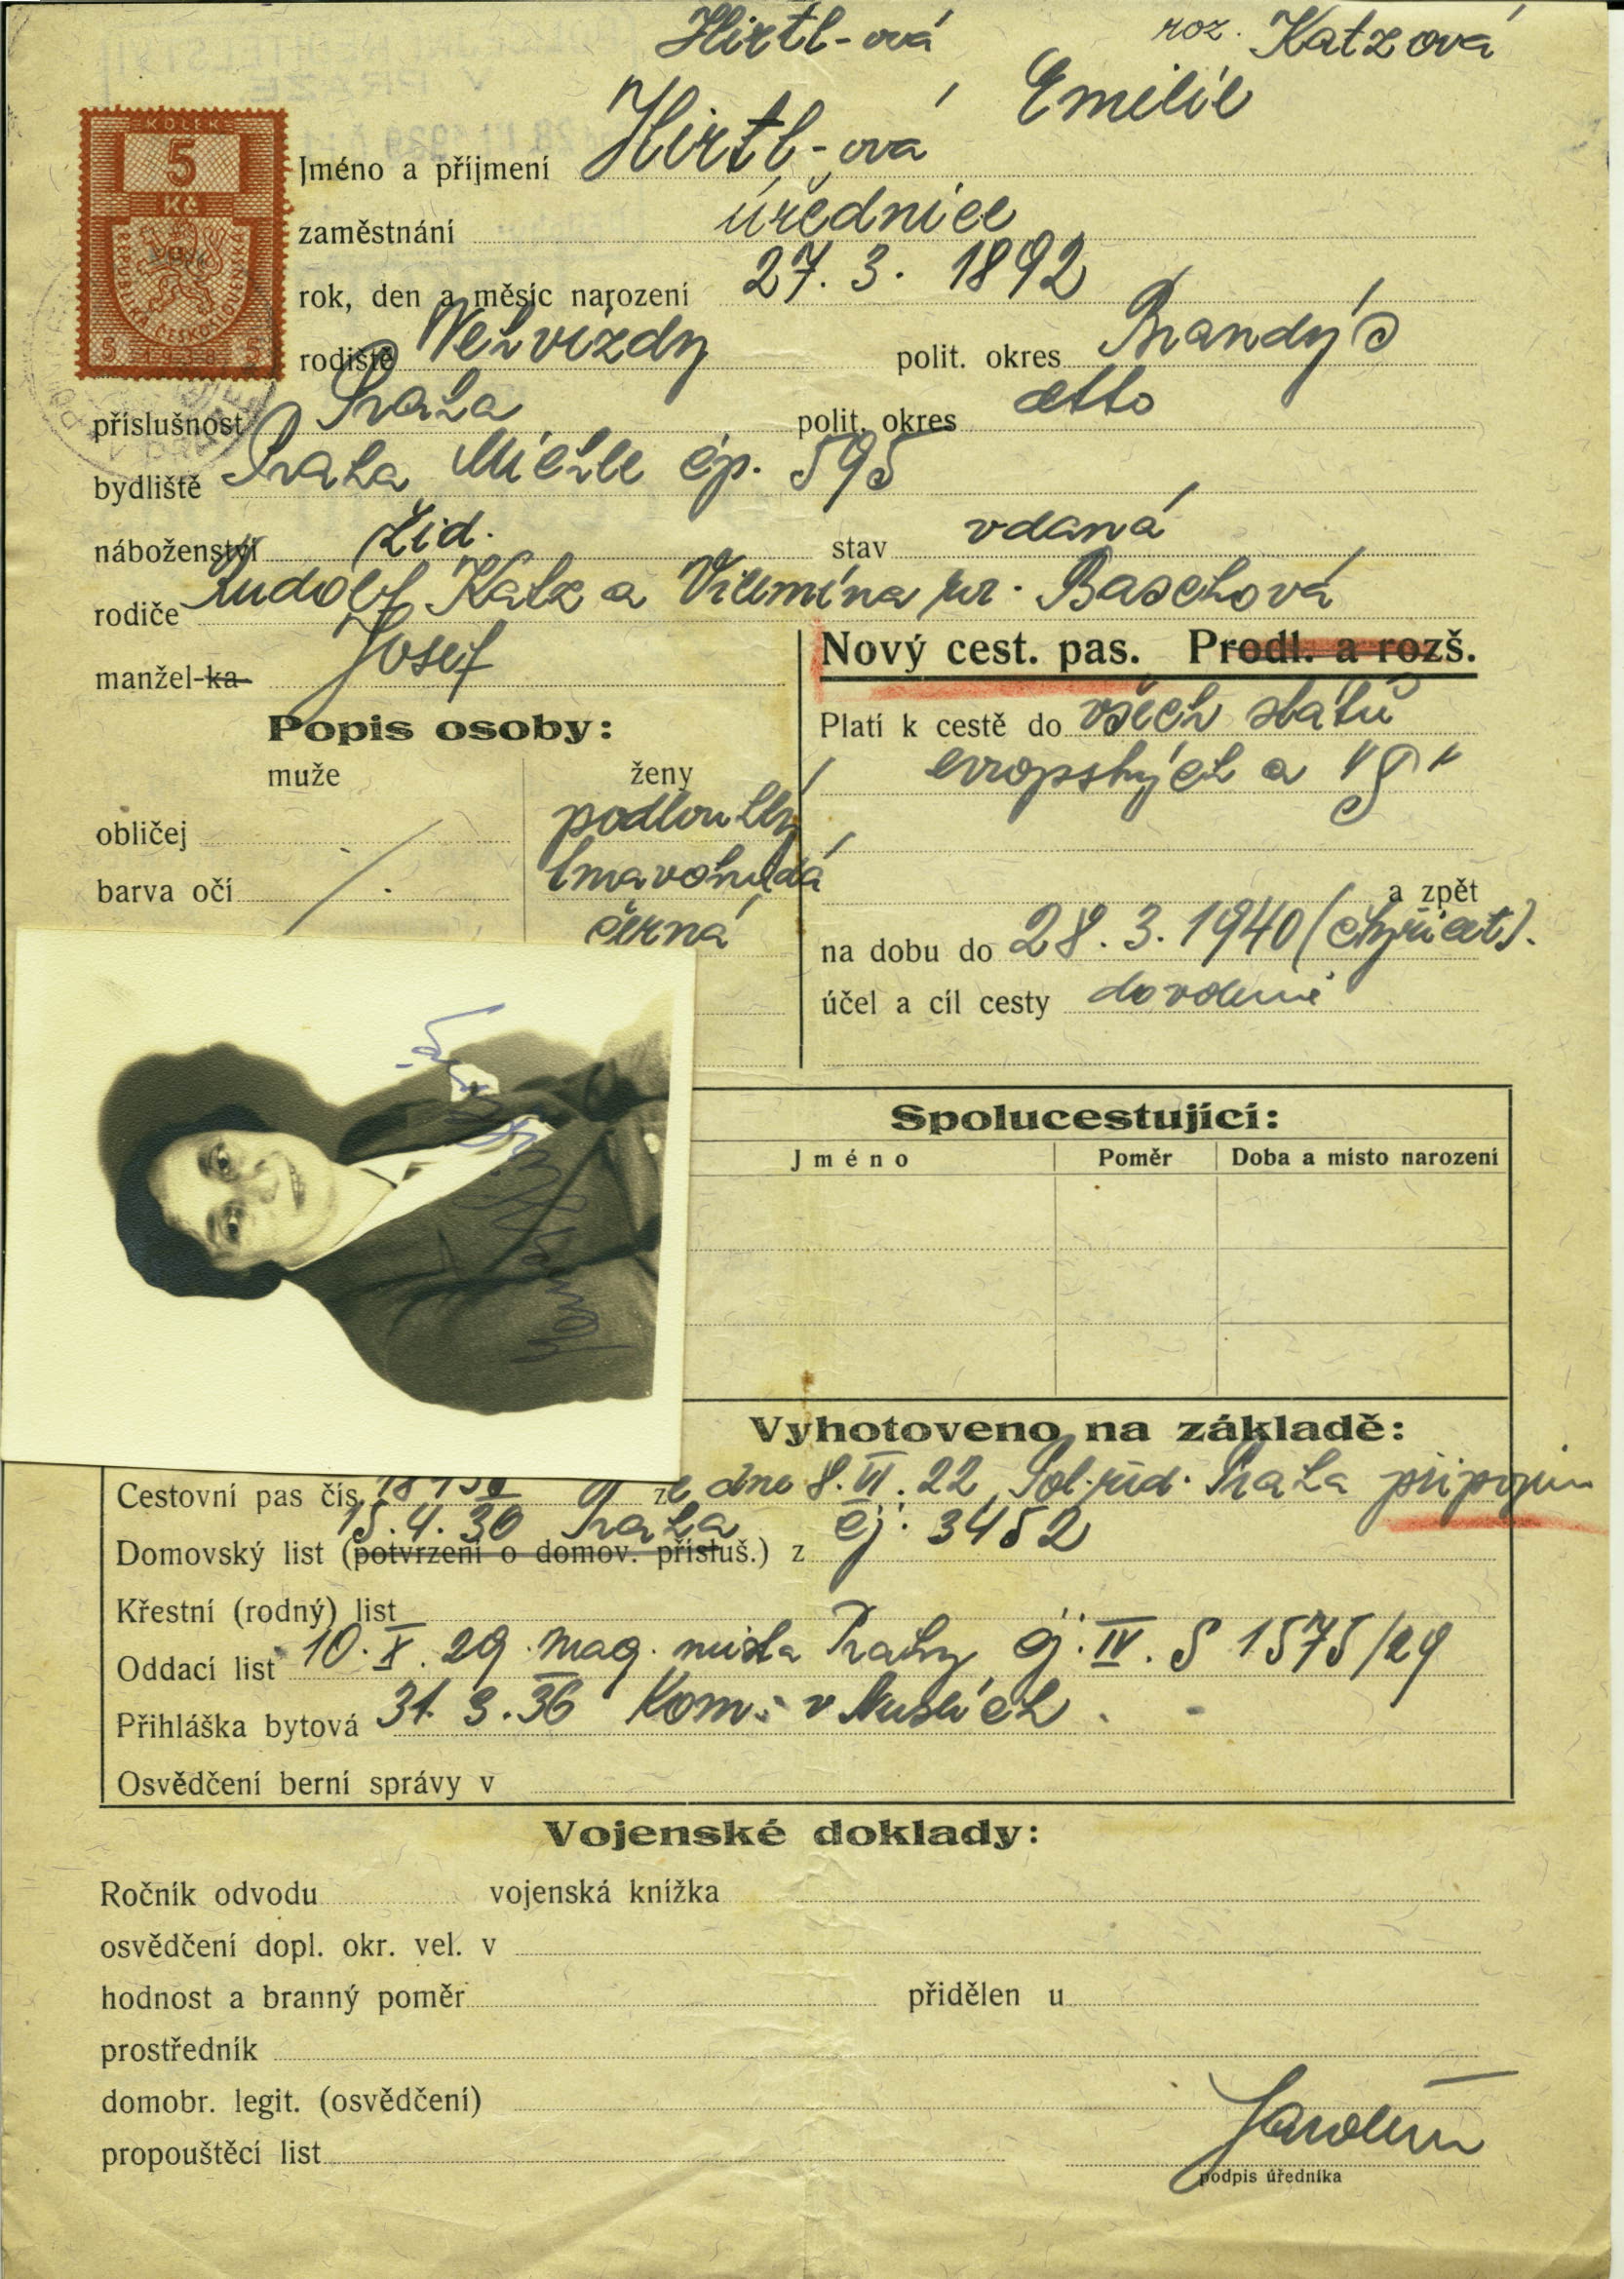 Hirtl-ová roz. Katzová
KOLEK
5
Kč
REPUBLIKA ČESKOSLOVENSKÁ
5 1938 5
Jméno a příjmení Hirtl-ová Emilie
zaměstnání úřednice
rok, den a měsíc narození 27. 3. 1892
rodiště Nehvizdy polit. okres Brandýs
příslušnost Praha polit. okres dtto
bydliště Praha Michle čp. 595
náboženství žid. stav vdaná
rodiče Rudolf Katz a Vilemína roz. Baschová
manžel-ka Josef
Nový cest. pas. Prodl. a rozš.
Popis osoby:
muže ženy
obličej podlouhlý
barva očí tmavohnědá
černá
Platí k cestě do všech států
evropských a
a zpět
na dobu do 28. 3. 1940
účel a cíl cesty dovolená
Spolucestující:
Jméno Poměr Doba a místo narození
Vyhotoveno na základě:
Cestovní pas čís. ze dne 8. VI. 22, Pol. řed. Praha připojen
Domovský list (potvrzení o domov. přísluš.) z 15. 4. 30 Praha čj. 3452
Křestní (rodný) list
Oddací list 10. X. 29. mag. města Prahy čj. IV. S 1575/29
Přihláška bytová 31. 3. 36 Kom. v Nuslích
Osvědčení berní správy v
Vojenské doklady:
Ročník odvodu vojenská knížka
osvědčení dopl. okr. vel. v
hodnost a branný poměr přidělen u
prostředník
domobr. legit. (osvědčení)
propouštěcí list
podpis úředníka